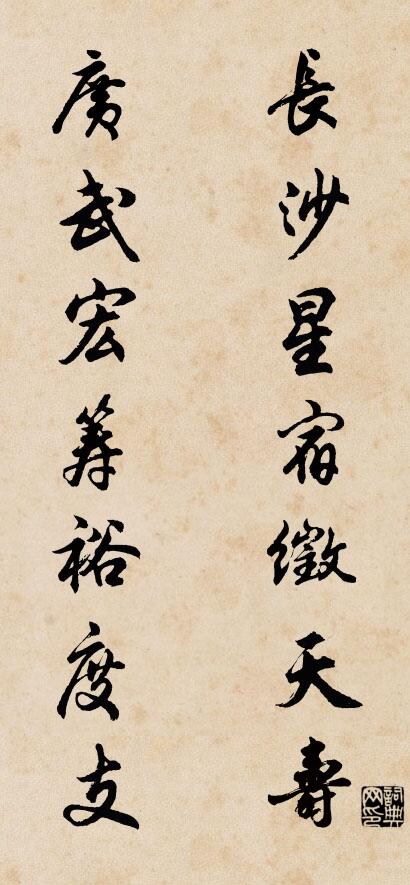 長沙星宿徵天壽
廣武宏籌裕度支
詞典網印